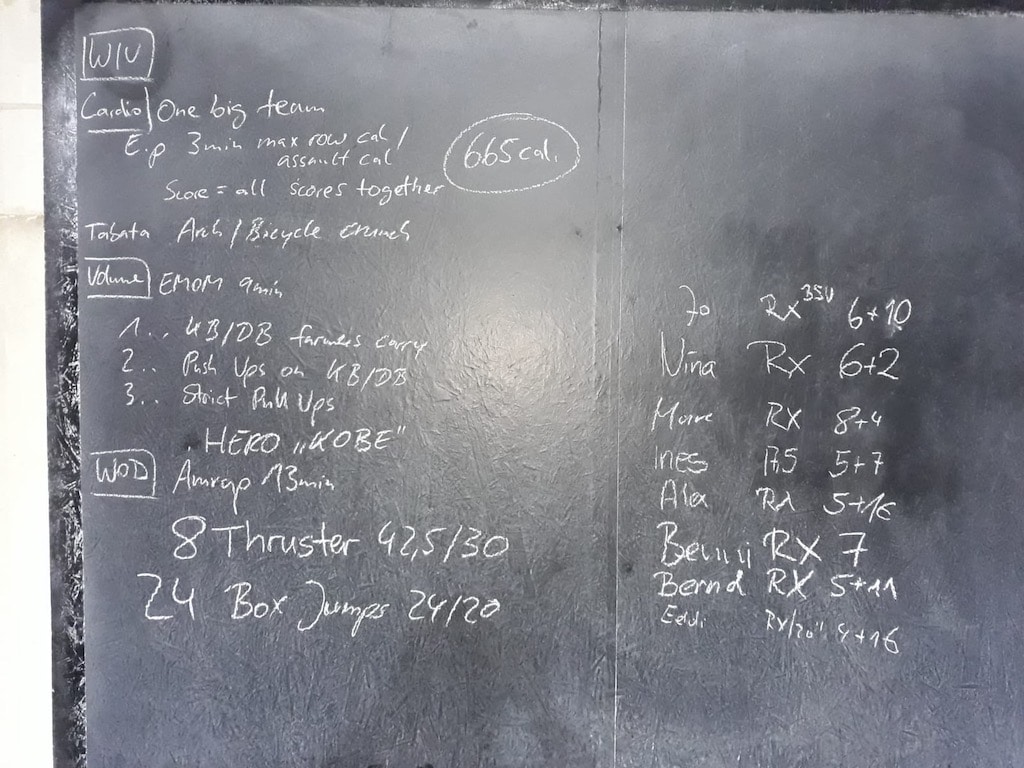 WIU
Cardio One big team
E.p 3min max row cal /
assault cal
665 cal.
Score = all scores together
Tabata Arch / Bicycle crunch
Volume EMOM 9min
1.. KB/DB farmers carry
2.. Push Ups on KB/DB
3.. Strict Pull Ups
. HERO „KOBE"
WOD Amrap 13min
8 Thruster 42,5/30
24 Box Jumps 24/20
Jo Rx 6+10
Nina Rx 6+2
RX 8+4
Ines 5+7
Alex 5+16
RX 7
Bernd RX 5+11
RX/20" 4+16